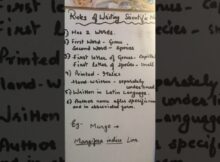 Rules of Writing Scientific N
1) Has 2 Words.
2) First Word - Genus
Second Word - Species
3) First letter of Genus - Capital
First letter of Species - Small
4) Printed - Italics
Hand written - separately
underlined
5) Written in Latin Language.
6) Author name after specific name
and in abbreviated form.
Eg - Mango →
Mangifera indica Linn.